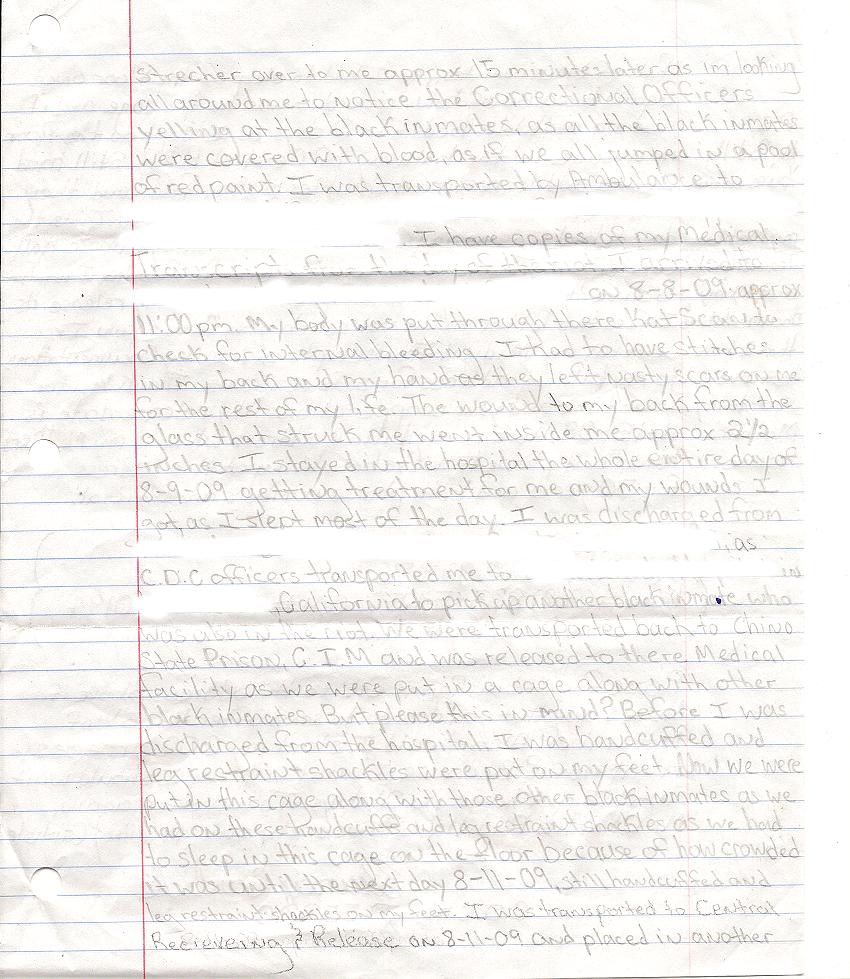 strecher over to me approx 15 minutes later as im looking
all around me to notice the Correctional Officers
yelling at the black inmates, as all the black inmates
were covered with blood, as if we all jumped in a pool
of red paint. I was transported by Ambulance to
I have copies of my Medical
Transcript from the day of the riot I arrived to
on 8-8-09 approx
11:00pm. My body was put through there Kat Scan to
check for internal bleeding. I had to have stitches
in my back and my hand as they left nasty scars on me
for the rest of my life. The wound to my back from the
glass that struck me went inside me approx 2 1/2
inches. I stayed in the hospital the whole entire day of
8-9-09 getting treatment for me and my wounds I
got, as I slept most of the day. I was discharged from
, as
C.D.C officers transported me to in
, California to pick up another black inmate who
was also in the riot. We were transported back to Chino
State Prison, C.I.M and was released to there Medical
facility as we were put in a cage along with other
black inmates. But please this in mind? Before I was
discharged from the hospital. I was handcuffed and
leg restraint shackles were put on my feet. Now we were
put in this cage along with those other black inmates as we
had on these handcuffs and leg restraint shackles as we had
to sleep in this cage on the floor because of how crowded
it was until the next day 8-11-09, still handcuffed and
leg restraint shackles on my feet. I was transported to Central
Recievering & Release on 8-11-09 and placed in another